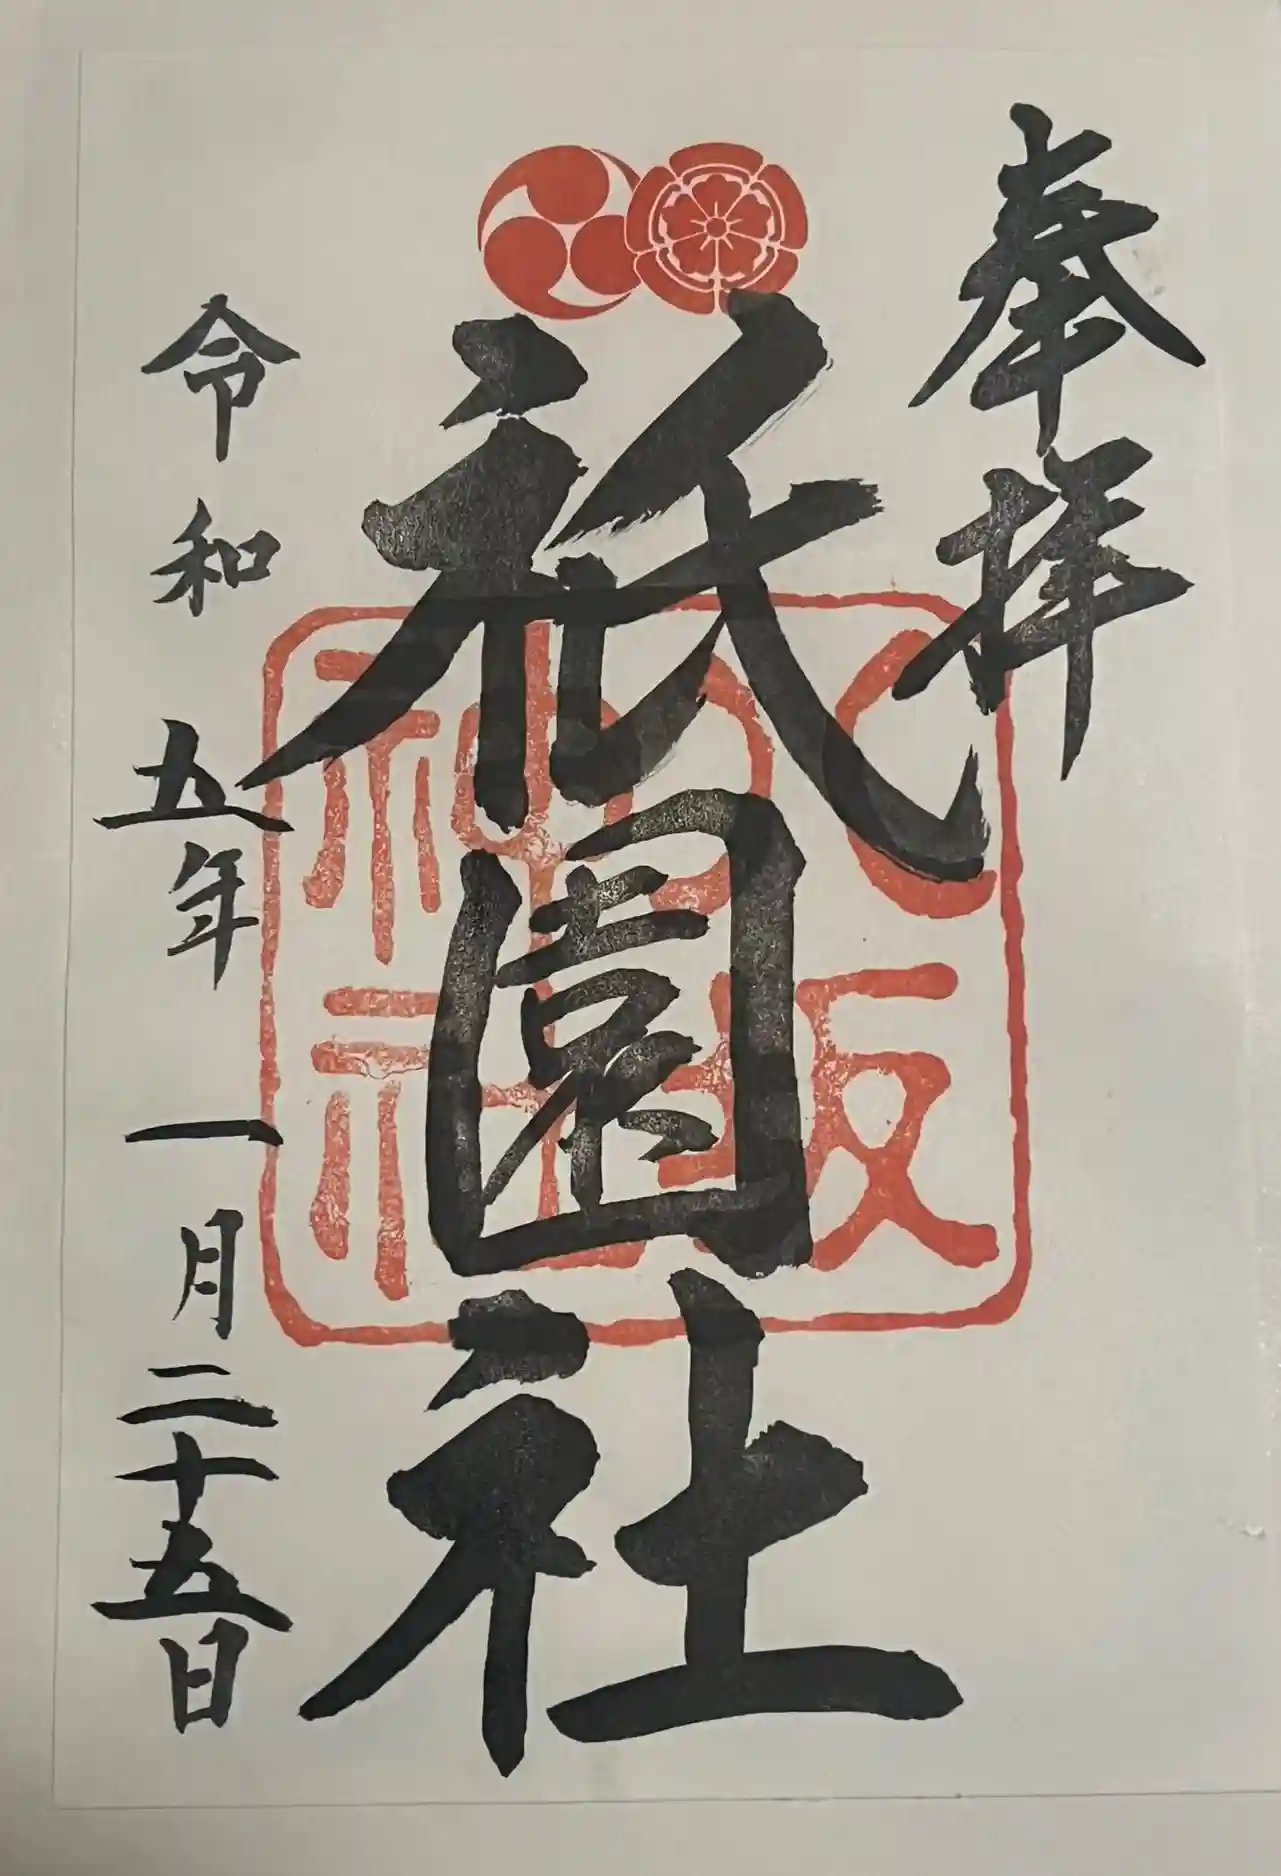 奉拝
祇園社
八坂
神社
令和五年一月二十五日